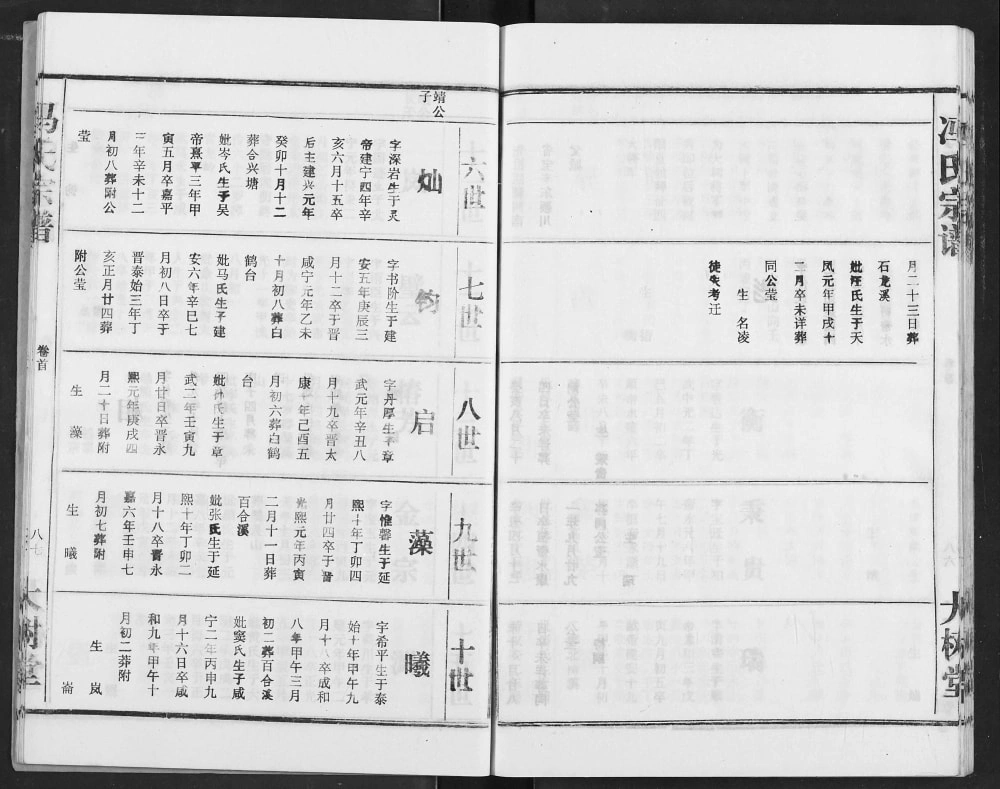 冯氏宗谱
大树堂
月二十三日葬
石龙溪
妣汪氏生于天
凤元年甲戌十
二月卒未详葬
同公莹
生 名凌
徒失考迁
靖公
子
六世
灿
字深岩生于灵
帝建宁四年辛
亥六月十五卒
后主建兴元年
癸卯十月十二
葬合兴塘
妣岑氏生于吴
帝熹平三年甲
寅五月卒嘉平
三年辛未十二
月初八葬附公
莹
七世
钧
字书阶生于建
安五年庚辰三
月十二卒于晋
咸宁元年乙未
十月初八葬白
鹤台
妣马氏生于建
安六年辛巳七
月初八日卒于
晋泰始三年丁
亥正月廿四葬
附公莹
八世
启
字丹厚生于章
武元年辛丑八
月十九卒晋太
康十年己酉五
月初六葬白鹤
台
妣林氏生于章
武二年壬寅九
月廿日卒晋永
熙元年庚戌四
月二十日葬附
生 藻
九世
藻
字惟馨生于延
熙十年丁卯四
月廿四卒于晋
光熙元年丙寅
二月十一日葬
百合溪
妣张氏生于延
熙十年丁卯二
月十八卒晋永
嘉六年壬申七
月初七葬附
生 曦
十世
曦
字希平生于泰
始十年甲午九
月十八卒成和
八年甲午三月
初二葬百合溪
妣窦氏生子咸
宁二年丙申九
月十六日卒咸
和九年甲午十
月初二葬附
生 岚
崙
冯氏宗谱
卷首
八七
大树堂